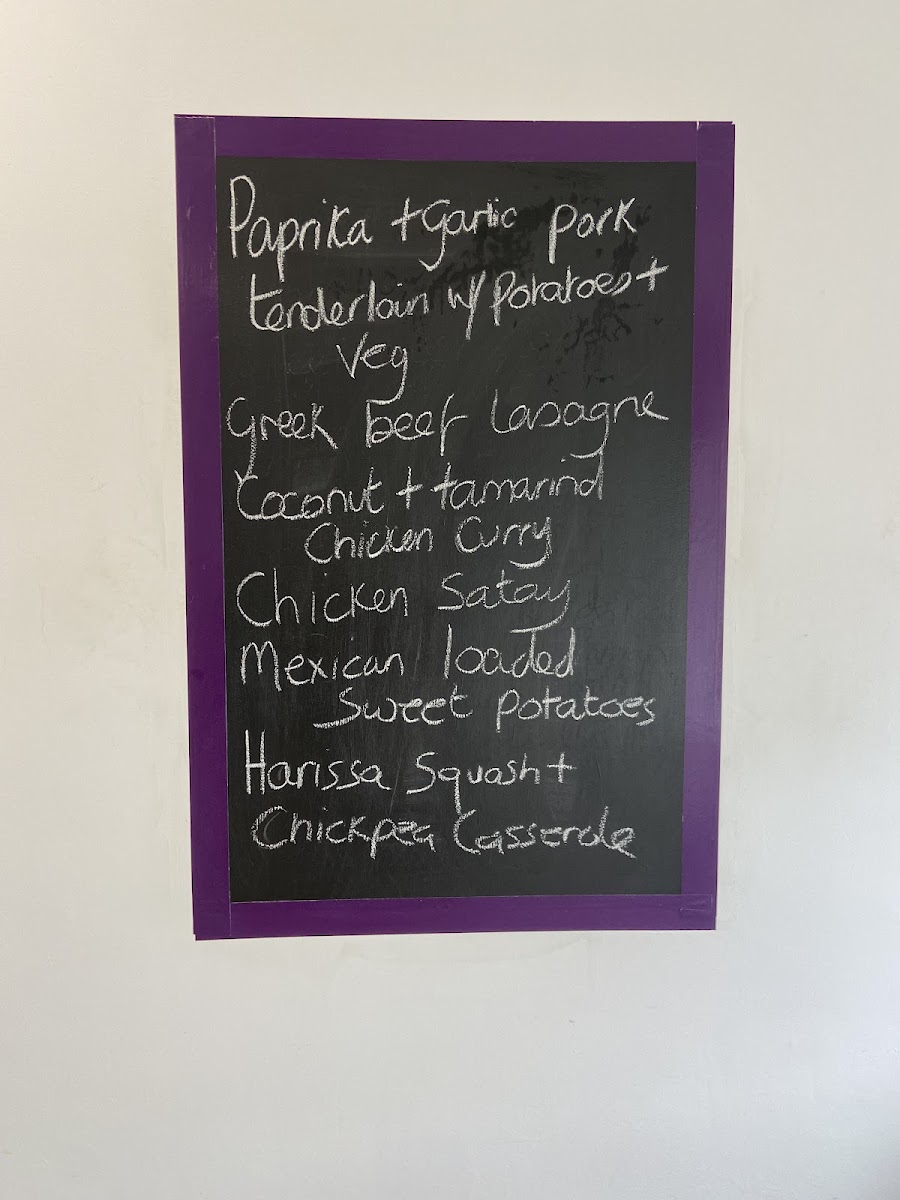 Paprika + Garlic pork
tenderloin w/ potatoes +
Veg
Greek beef lasagne
Coconut + tamarind
Chicken Curry
Chicken Satay
Mexican loaded
Sweet potatoes
Harissa Squash +
Chickpea Casserole